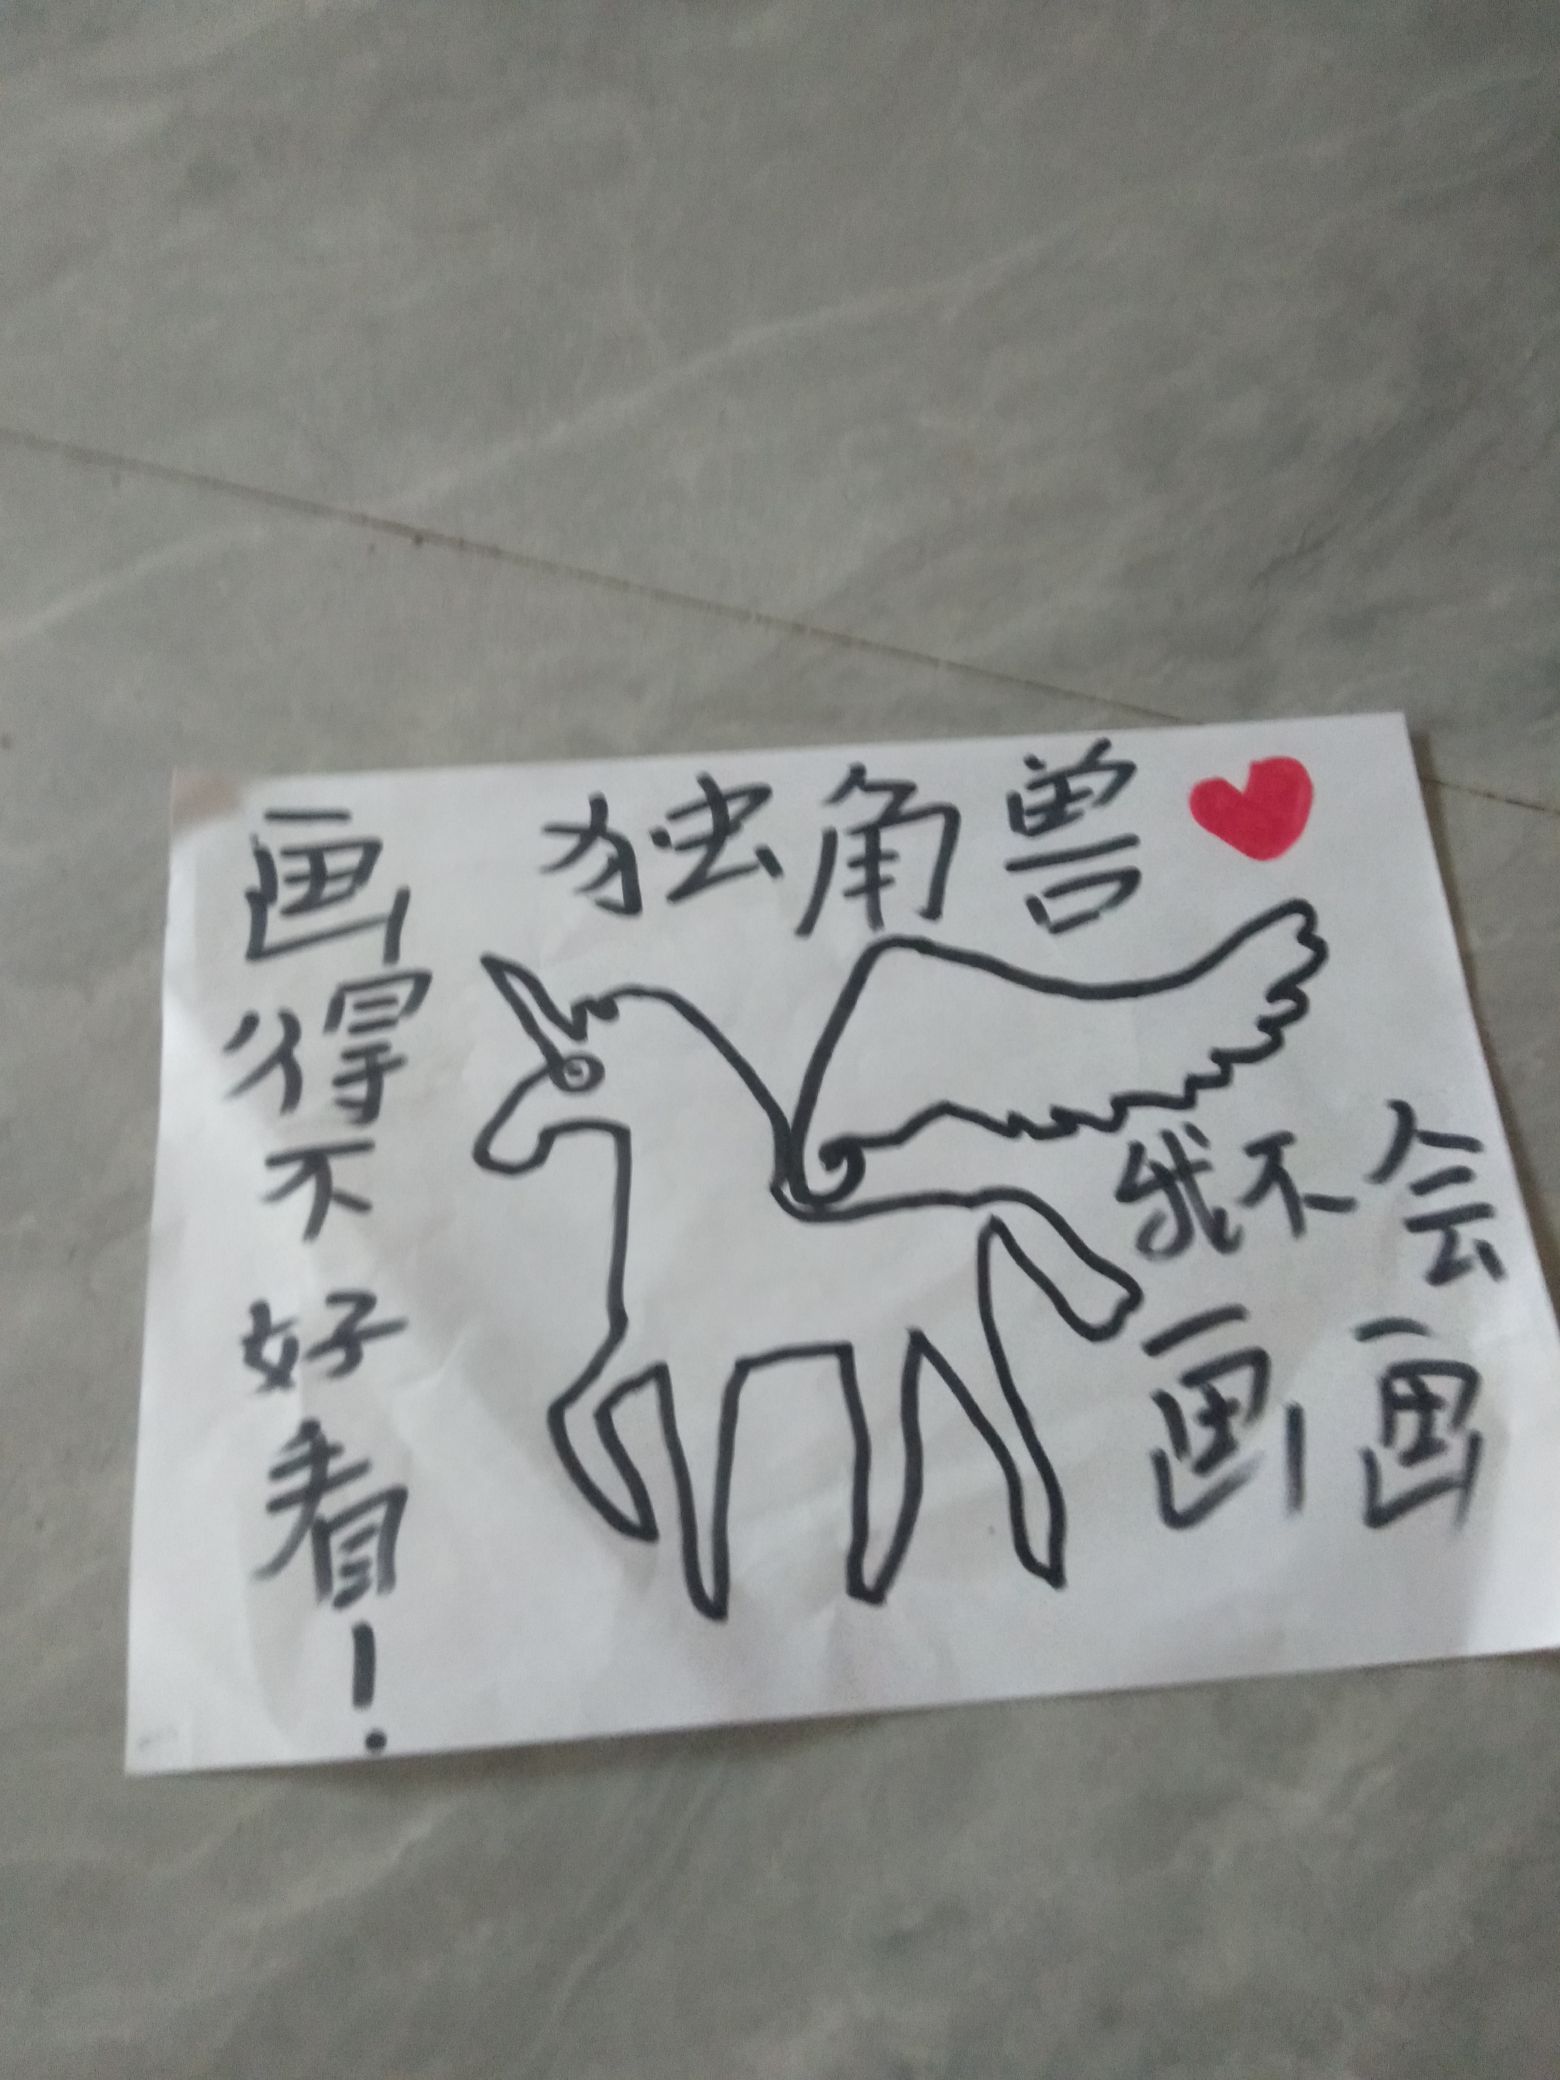 独角兽
画得不好看！
我不会
画画